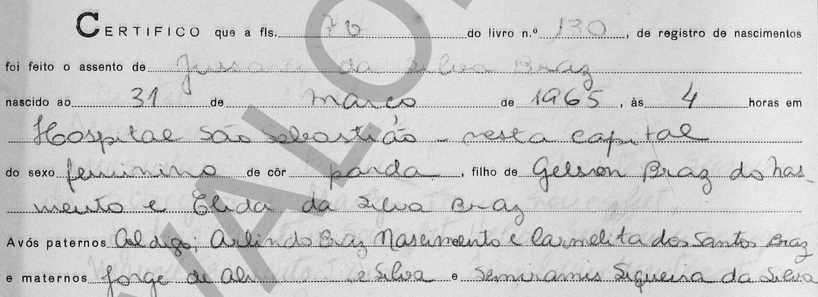 CERTIFICO que a fls. 76 do livro n.º 130, de registro de nascimentos
foi feito o assento de Jussara da Silva Braz
nascido ao 31 de março de 1965, às 4 horas em
Hospital São Sebastião - nesta capital
do sexo feminino de côr parda, filho de Gelson Braz do Nas-
mento e Elida da Silva Braz
Avós paternos Aldigo, Arlindo Braz Nascimento e Carmelita dos Santos Braz
e maternos Jorge de e Silva e Semiramis Siqueira da Silva
VALO